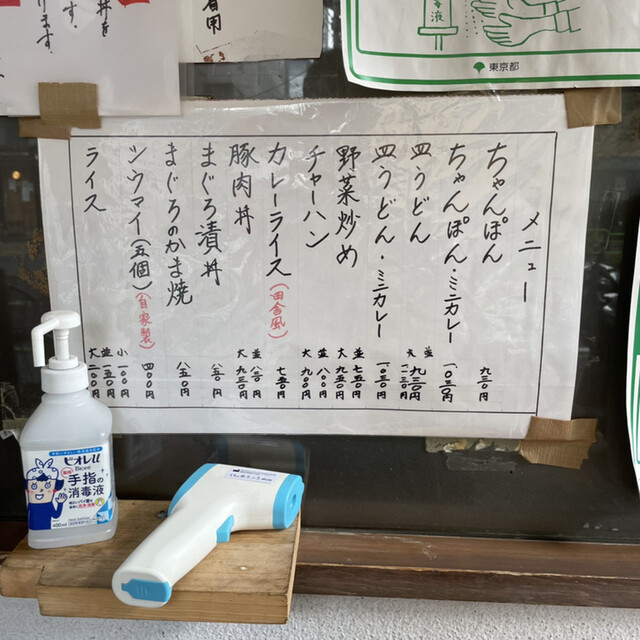 メニュー
ちゃんぽん 九三〇円
ちゃんぽん・ミニカレー 一〇三〇円
皿うどん 並 九三〇円
大 一一三〇円
皿うどん・ミニカレー 一〇三〇円
野菜炒め 並 七五〇円
大 九五〇円
チャーハン 並 八〇〇円
大 九〇〇円
カレーライス(田舎風) 七五〇円
豚肉丼 並 八三〇円
大 九三〇円
まぐろ漬丼 八五〇円
まぐろのかま焼 八五〇円
シウマイ(五個)(自家製) 四〇〇円
ライス 小 一〇〇円
並 一五〇円
大 二〇〇円
東京都
ビオレu
Bioré
手指の
消毒液